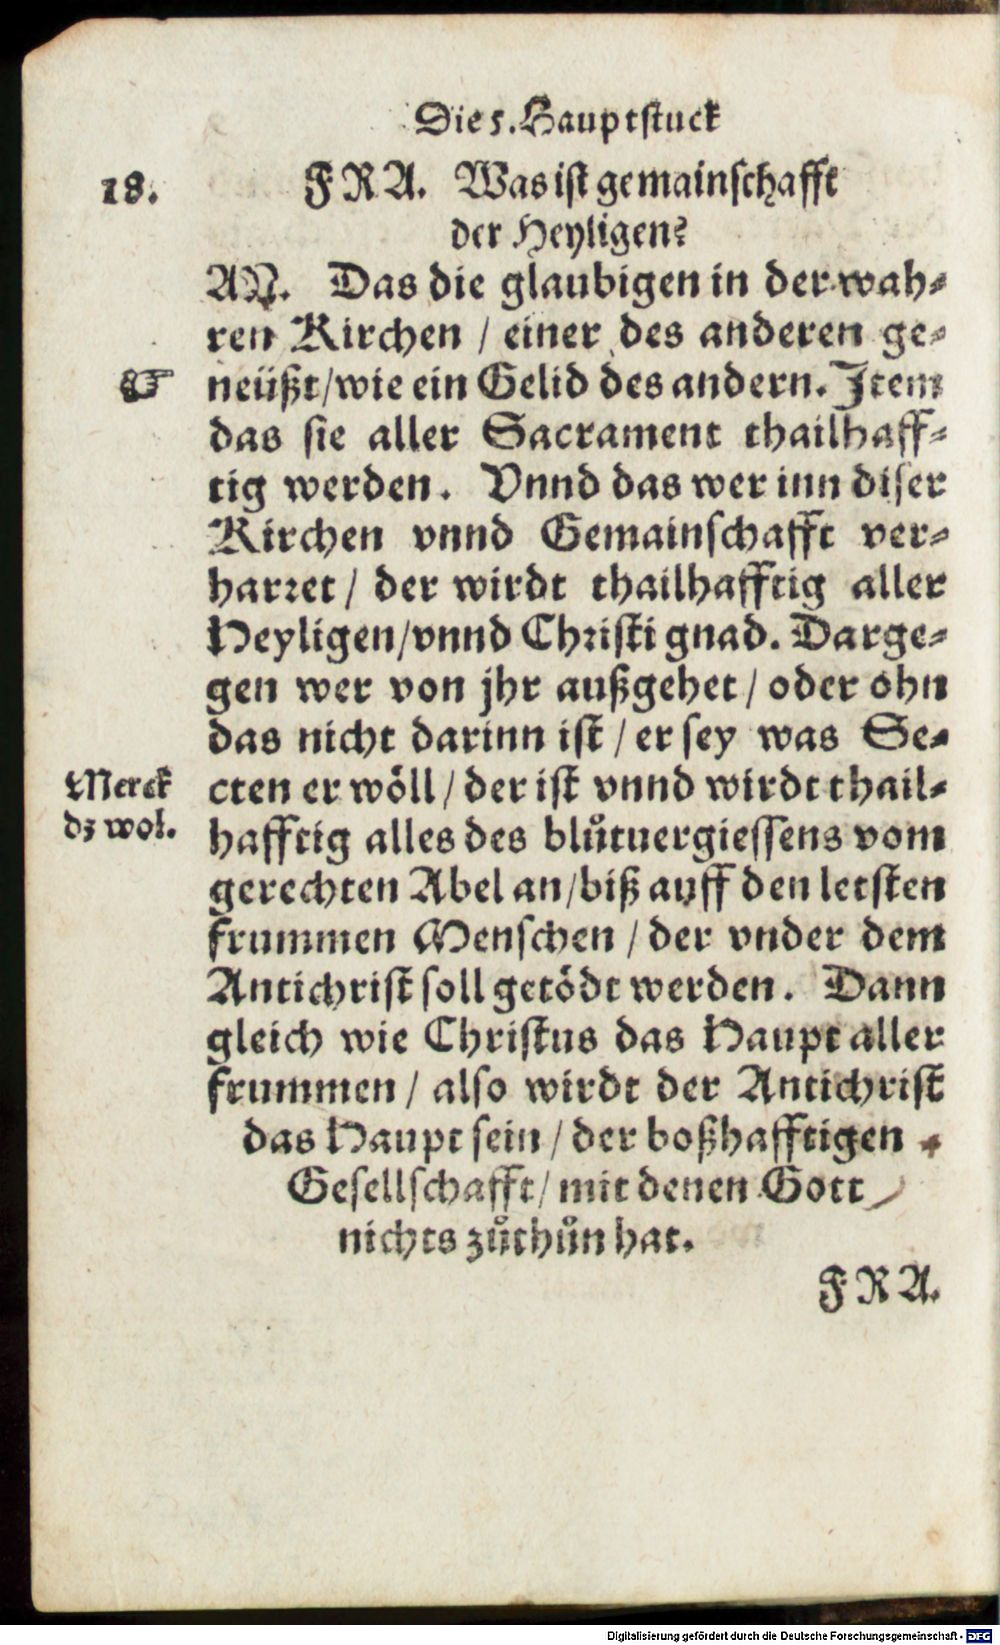 Die 5. Hauptstuck
18. FRA. Was ist gemainschafft
der Heyligen?
AN. Das die glaubigen in der wah⸗
ren Kirchen / einer des anderen ge⸗
☞ neüßt / wie ein Gelid des andern. Item
das sie aller Sacrament thailhaff⸗
tig werden. Vnnd das wer inn diser
Kirchen vnnd Gemainschafft ver⸗
harret / der wirdt thailhafftig aller
Heyligen / vnnd Christi gnad. Darge⸗
gen wer von jhr außgehet / oder ohn
das nicht darinn ist / er sey was Se⸗
Merck
dz wol.
cten er wöll / der ist vnnd wirdt thail⸗
hafftig alles des blůtuergiessens vom
gerechten Abel an / biß auff den letsten
frummen Menschen / der vnder dem
Antichrist soll getödt werden. Dann
gleich wie Christus das Haupt aller
frummen / also wirdt der Antichrist
das Haupt sein / der boßhafftigen
Gesellschafft / mit denen Gott
nichts zůthůn hat.
FRA.
Digitalisierung gefördert durch die Deutsche Forschungsgemeinschaft - DFG